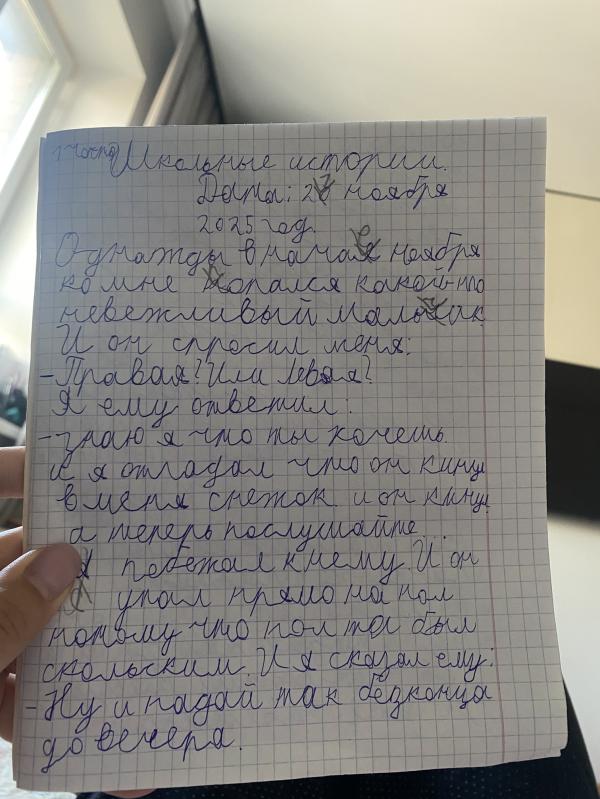 Школьные истории.
Даты: 2 ноября
2025 год.
Однажды в начале ноября
ко мне копался какой-то
невежливый мальчик.
И он спросил меня:
- Правая? Или левая?
Я ему ответил:
- знаю я что ты хочешь
и я отгадал что он кинул
в меня снежок. и он кинул
а теперь послушайте...
Я побежал к нему. И он
упал прямо на пол
потому что пол та был
скольским. И я сказал ему:
- Ну и падай так бедконца
до вечера.